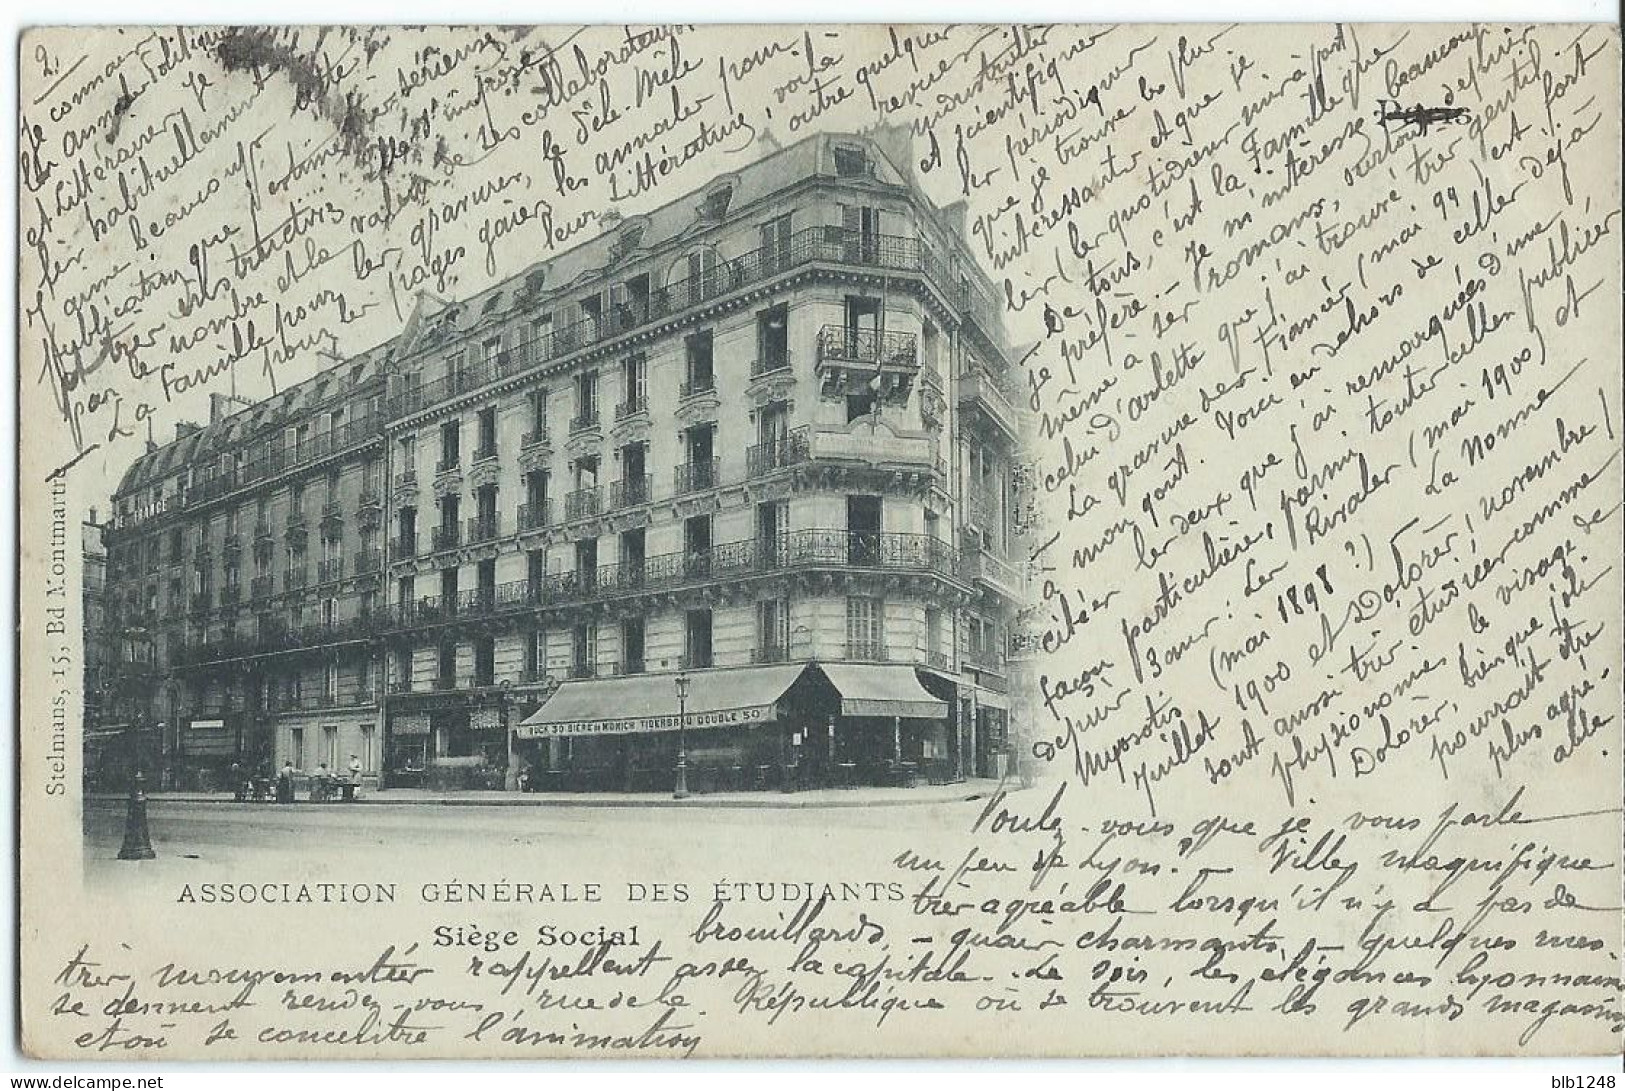 2.
Je connais
les annales Politiques
et Littéraires, je
lis habituellement cette
J'aime beaucoup
publication que j'estime très sérieuse
et très instructive
par le nombre et la valeur de ses collaborateurs.
La Famille pour les gravures, le Pêle-Mêle
pour les pages gaies, les annales pour
leur Littérature, voilà
outre quelques
revues
industrielles
et scientifiques
les périodiques
que je trouve les plus
intéressants et que je
lis (les quotidiens mis à part)
De tous, c'est la Famille que
je préfère. - Je m'intéresse beaucoup
même à ses romans, surtout depuis
celui d'arlette que j'ai trouvé très gentil. -
La gravure des Fiancés (mai 99) est fort
à mon goût. Voici en dehors de celles déjà
citées les deux que j'ai remarquées d'une
façon particulière, parmi toutes celles publiées
depuis 3 ans: Les Rivales (mai 1900) et
Myosotis (mai 1898?) - La Nonne
Juillet 1900 et Dolorès, novembre)
sont aussi très étudiées comme
physionomies, le visage de
Dolorès, bien que joli
pourrait être
plus agré-
able.
Paris
Stelmans, 15, Bd Montmartre
DE FRANCE
BOCK 30 BIERE DE MUNICH TIGERBRAU DOUBLE 50
Voulez-vous que je vous parle
un peu de Lyon? - Ville magnifique
ASSOCIATION GÉNÉRALE DES ÉTUDIANTS
très agréable lorsqu'il n'y a pas de
Siège Social
brouillards, - quais charmants, - quelques rues
très mouvementées rappellent assez la capitale. - Le soir, les élégances lyonnaises
se donnent rendez-vous rue de la République où se trouvent les grands magasins
et où se concentre l'animation
blb1248